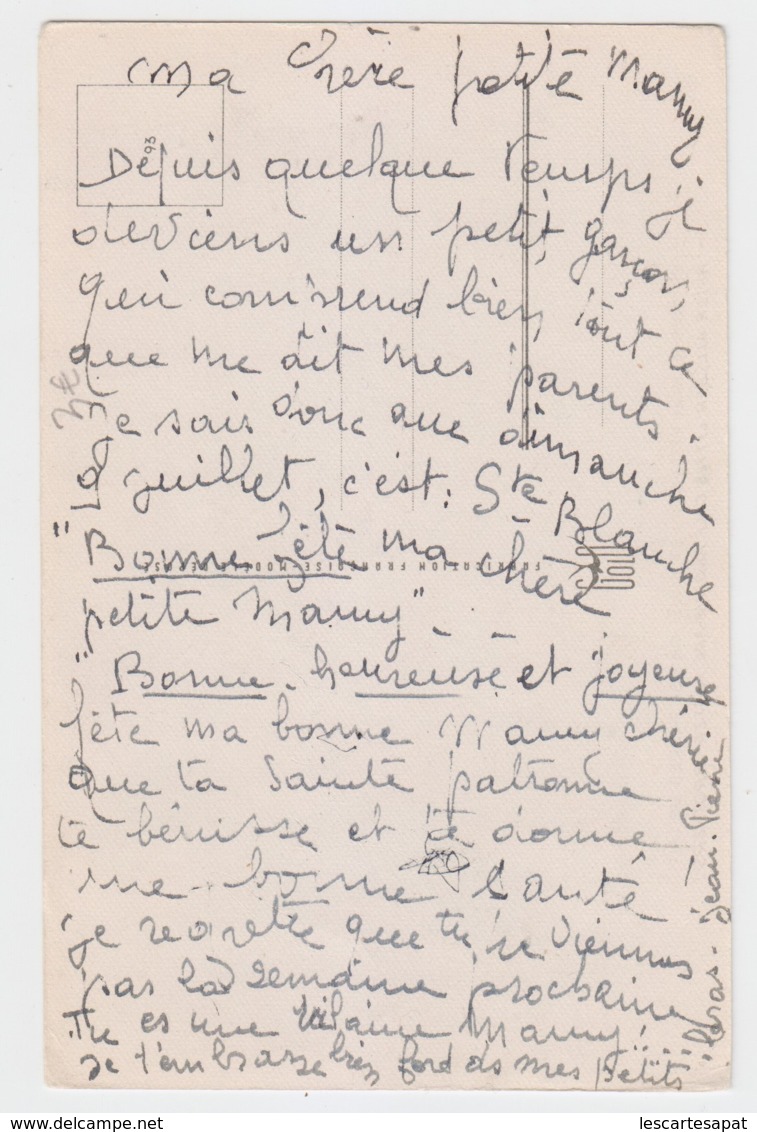 Ma chère petite Mamy
Depuis quelque temps je
deviens un petit garçon,
qui comprend bien tout ce
que me dit mes parents.
Je sais donc que dimanche
juillet, c'est: Ste Blanche
"Bonne fête ma chère
petite Mamy".
"Bonne heureuse et joyeuse
fête ma bonne Mamy chérie
que ta Sainte patronne
te bénisse et te donne
une bonne santé!
je regrette que tu ne viennes
pas la semaine prochaine
Tu es une vilaine Mamy!...
je t'embrasse bien fort de mes petits
bras. Jean-Pierre
93
FABRICATION FRANÇAISE
lescartesapat